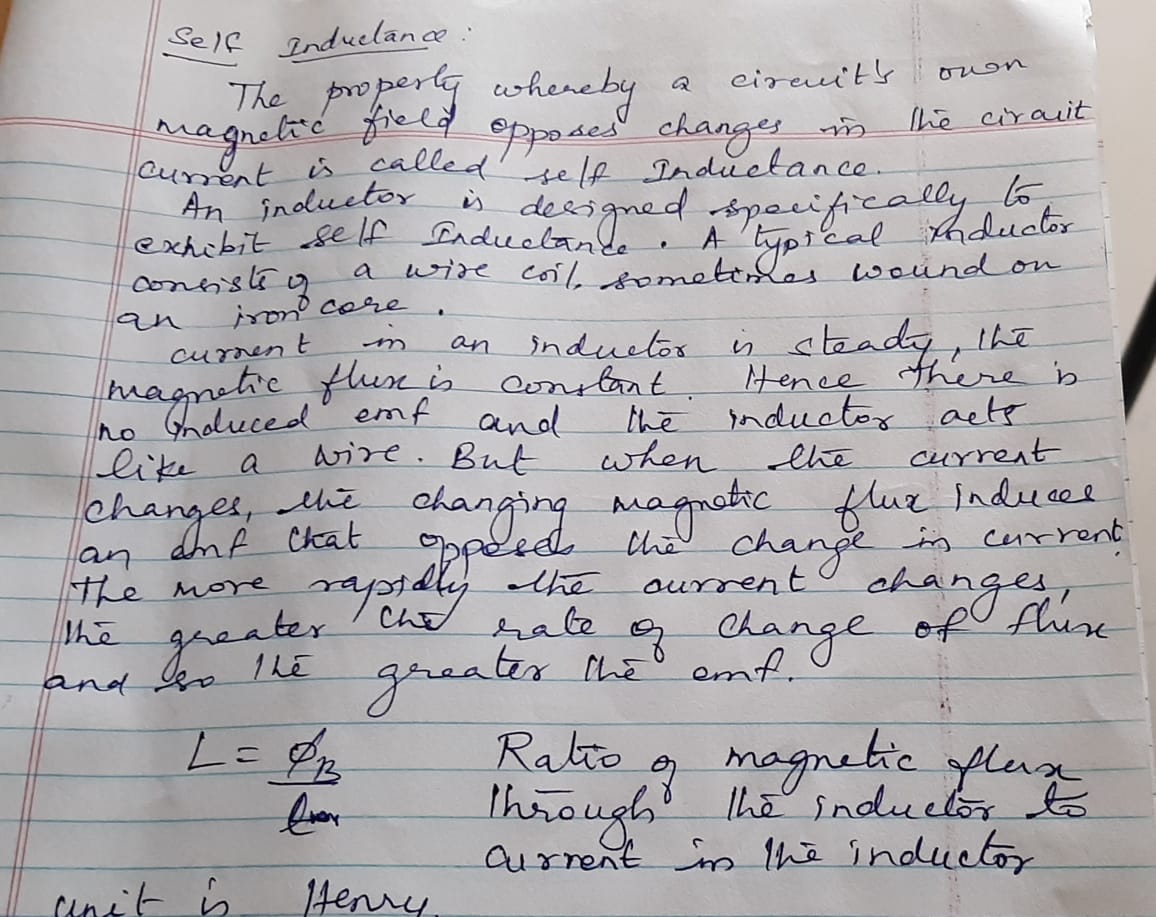 Self Inductance:
The property whereby a circuit's own
magnetic field opposes changes in the circuit
current is called self Inductance.
An inductor is designed specifically to
exhibit self Inductance. A typical inductor
consists of a wire coil, sometimes wound on
an iron core.
current in an inductor is steady, the
magnetic flux is constant. Hence there is
no induced emf and the inductor acts
like a wire. But when the current
changes, the changing magnetic flux induces
an emf that opposes the change in current.
The more rapidly the current changes,
the greater the rate of change of flux
and so the greater the emf.
L = ϕB Ratio of magnetic flux
through the inductor to
current in the inductor
unit is Henry.